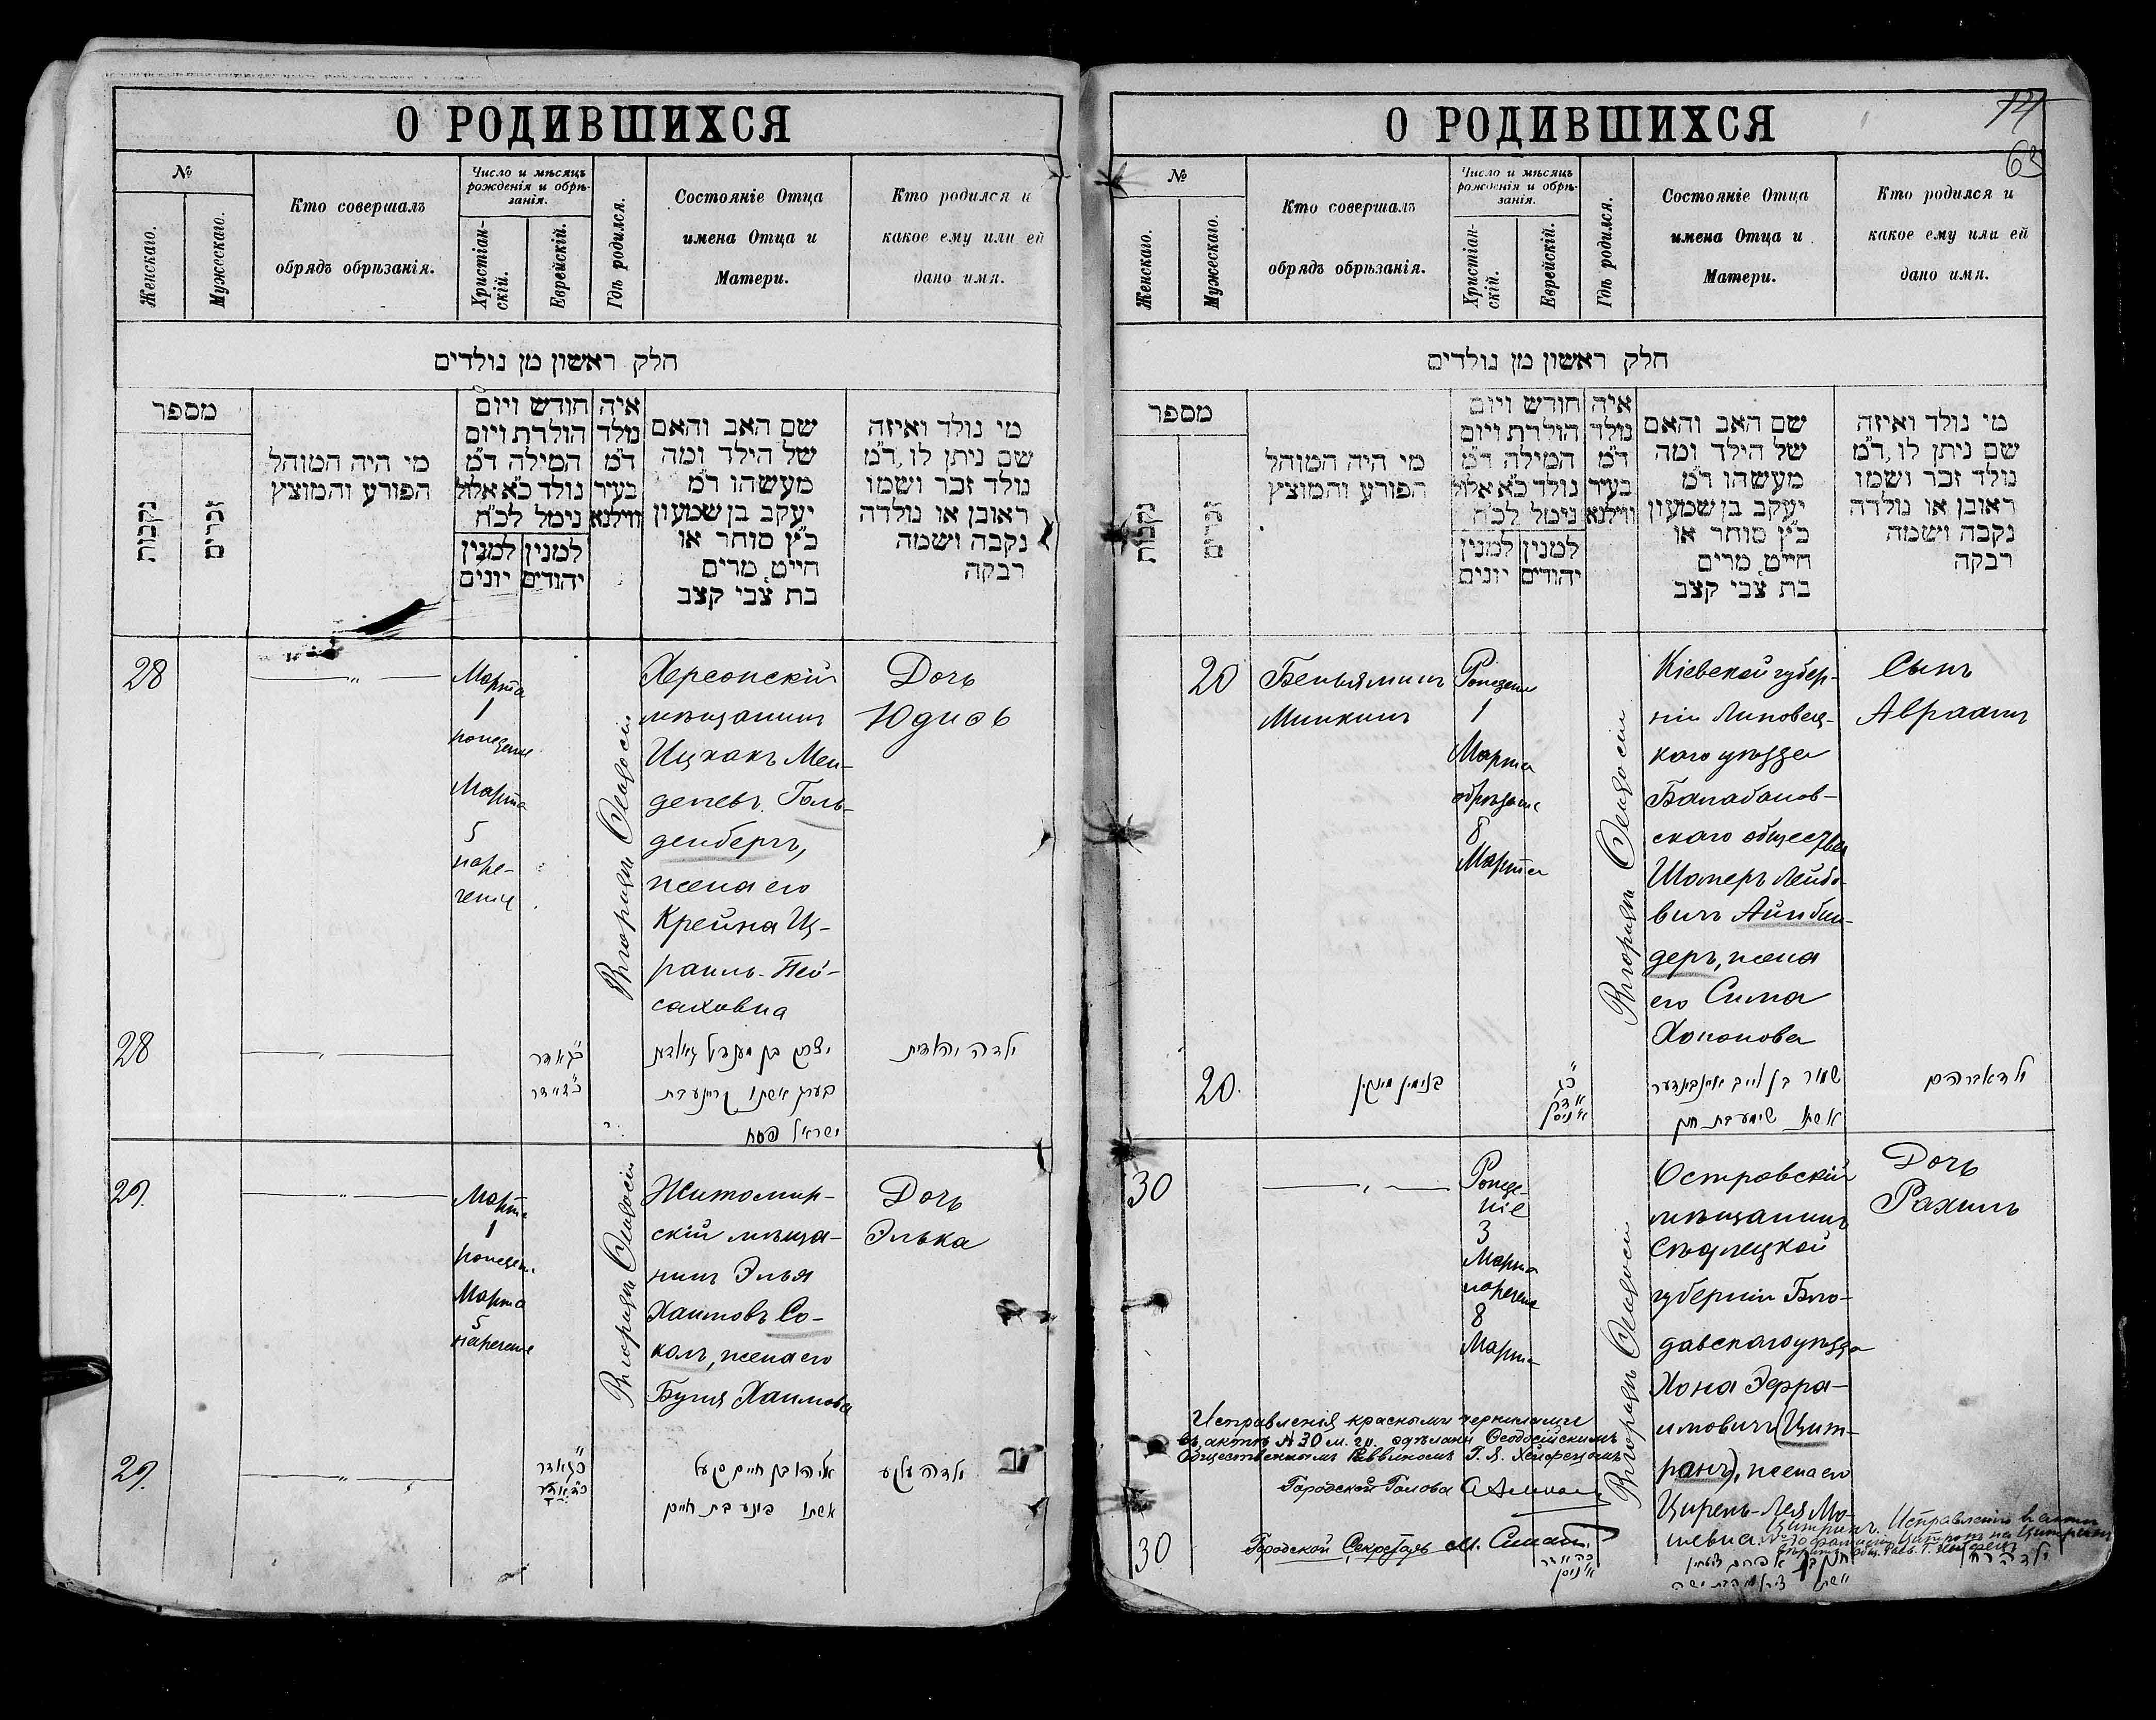 О РОДИВШИХСЯ
№
Женскаго.
Мужескаго.
Кто совершалъ
обрядъ обрѣзанія.
Число и мѣсяцъ
рожденія и обрѣ-
занія.
Христіан-
скій.
Еврейскій.
Гдѣ родился.
Состояніе Отца
имена Отца и
Матери.
Кто родился и
какое ему или ей
дано имя.
חלק ראשון מן נולדים
מספר
נקבות
זכרים
מי היה המוהל
הפורע והמוצץ
חודש ויום
הולדת ויום
המילה ד״מ
נולד כ״א אלול
נימל לכ״ח
למנין
יונים
למנין
יהודים
איה
נולד
ד״מ
בעיר
ווילנא
שם האב והאם
של הילד ומה
מעשהו ד״מ
יעקב בן שמעון
כ״ץ סוחר או
חייט, מרים
בת צבי קצב
מי נולד ואיזה
שם ניתן לו, ד״מ
נולד זכר ושמו
ראובן או נולדה
נקבה ושמה
רבקה
28
Марта
1
рожденіе
Марта
5
наре-
ченіе
Въ городѣ Ѳеодосіи
Херсонскій
мѣщанинъ
Ицхакъ Мен-
делевъ Голь-
денбергъ,
жена его
Крейна Из-
раиль-Пей-
саховна
Дочь
Юдиѳь
28
כ״ג אדר
ישראל פסח
ילדה יהודית
29.
Марта
1
рожденіе
Марта
5
нареченіе
Въ городѣ Ѳеодосіи
Житомир-
скій мѣща-
нинъ Элья
Хаимовъ Со-
колъ, жена его
Буня Хаимова
Дочь
Элька
29.
כ״ג אדר
אליהו בן חיים סקעל
אשתו בוניע בת חיים
ילדה עלקע
О РОДИВШИХСЯ
14
63
№
Женскаго.
Мужескаго.
Кто совершалъ
обрядъ обрѣзанія.
Число и мѣсяцъ
рожденія и обрѣ-
занія.
Христіан-
скій.
Еврейскій.
Гдѣ родился.
Состояніе Отца
имена Отца и
Матери.
Кто родился и
какое ему или ей
дано имя.
חלק ראשון מן נולדים
מספר
נקבות
זכרים
מי היה המוהל
הפורע והמוצץ
חודש ויום
הולדת ויום
המילה ד״מ
נולד כ״א אלול
נימל לכ״ח
למנין
יונים
למנין
יהודים
איה
נולד
ד״מ
בעיר
ווילנא
שם האב והאם
של הילד ומה
מעשהו ד״מ
יעקב בן שמעון
כ״ץ סוחר או
חייט, מרים
בת צבי קצב
מי נולד ואיזה
שם ניתן לו, ד״מ
נולד זכר ושמו
ראובן או נולדה
נקבה ושמה
רבקה
20
Беньяминъ
Минкинъ
Рожденіе
1
Марта
обрѣзаніе
8
Марта
Въ городѣ Ѳеодосіи
Кіевской губер-
ніи Липовец-
каго уѣзда
Балабанов-
скаго общества
Шмеръ Лейбо-
вичъ Айнбин-
деръ, жена
его Сима
Хононова
Сынъ
Авраамъ
20.
בנימין מינקין
כ״ג
אדר
א׳ ניסן
אשתו שימע בת חנן
ילד אברהם
30
Рожде-
ніе
3
Марта
нареченіе
8
Марта
Въ городѣ Ѳеодосіи
Островскій
мѣщанинъ
Сѣдлецкой
губерніи Вло-
давскаго уѣзда
Хона Эфра-
имовичъ (Цит-
ранъ), жена его
Цирень-Лея Мо-
шевна
Дочь
Рахиль
Исправленія красными чернилами
въ актѣ № 30 м. г. сдѣланы Ѳеодосійскимъ
Общественнымъ Раввиномъ Г. Я. Хейфецомъ
Городской Голова
Городской Секретарь М.
30
כ״ה אדר
א׳ ניסן
ילדה רחל